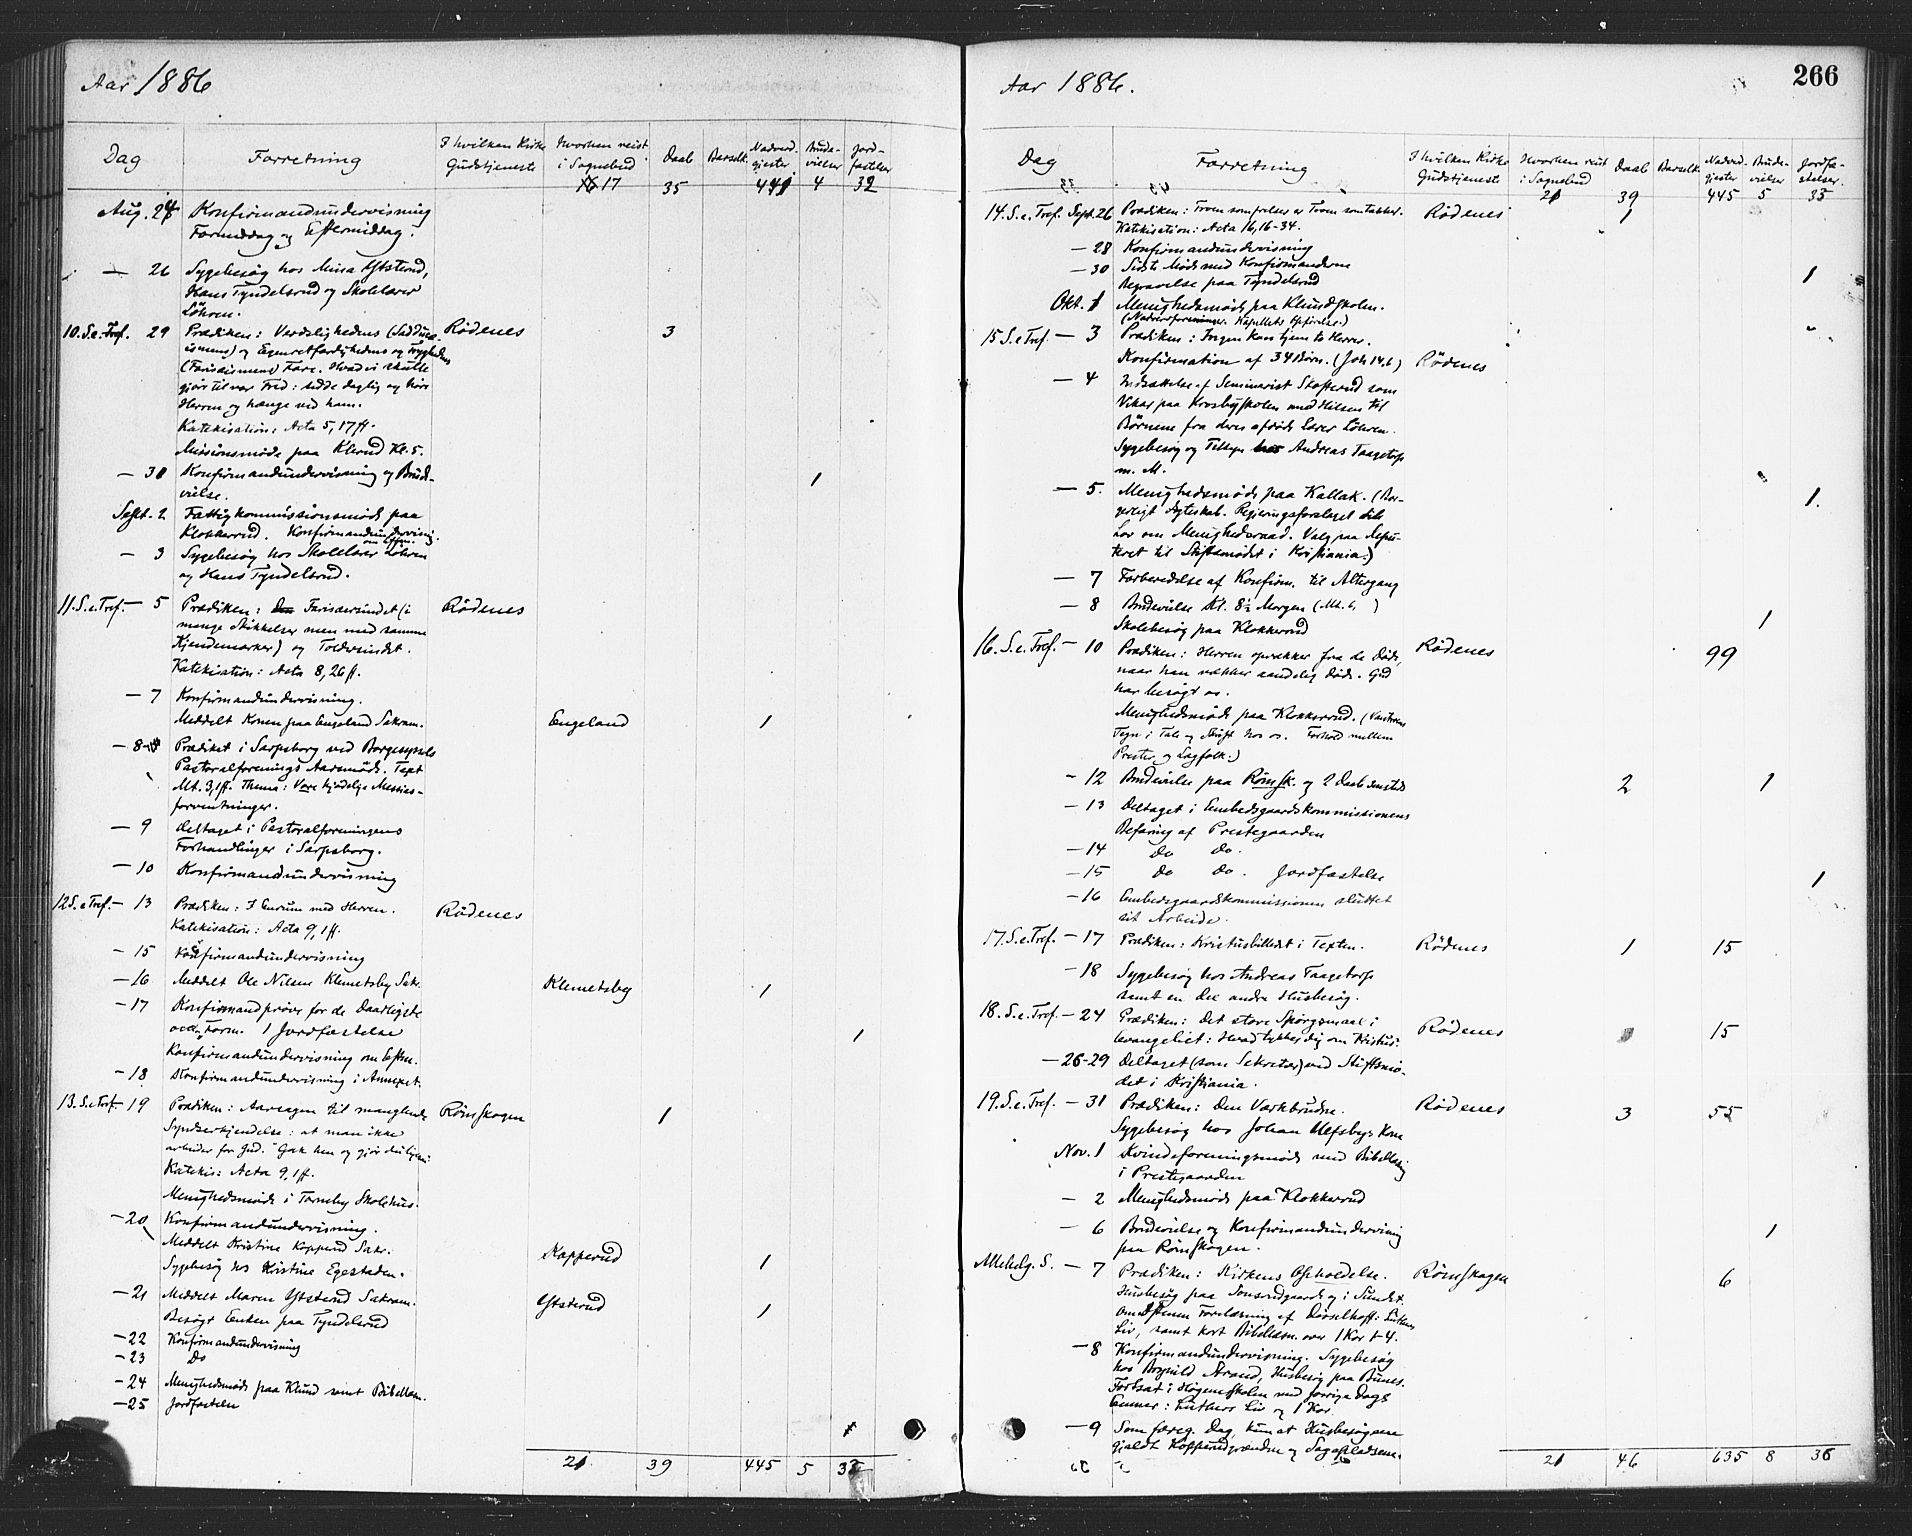 Aar 1886
Dag
Forretning
I hvilken Kirke Gudstjeneste
Hvorhen reist i Sognebud
Daab
Barselk.
Nadverd- gjester
Brude- vielser
Jord- fæstelser
17 35 441 4 32
Aug. 24 Konfirmandundervisning
Formiddag og Eftermiddag.
— 26 Sygebesøg hos Mina Ytsterud,
Hans Tyndelsrud og Skolelærer
Løhren.
10. S. e. Tref. 29 Prædiken: Verdslighedens (Sadducæ- Rødenes 3
ismens) og Egenretfærdighedens og Tryghedens
(Farisæismens) Fare. Hvad vi skulle
gjøre til vor Fred: sidde daglig og høre
Herren og hænge ved ham.
Katekisation: Acta 5, 17 ff.
Missionsmøde paa Klund Kl. 5.
— 30 Konfirmandundervisning og Brude- 1
vielse.
Sept. 2 Fattigkommissionsmøde paa
Klokkerud. Konfirmandundervisnig.
om Eftm.
— 3 Sygebesøg hos Skolelærer Løhren
og Hans Tyndelsrud.
11. S. e. Tref. — 5 Prædiken: Farisæersindet (i Rødenes
mange Skikkelser men med samme
Kjendemærker) og Toldersindet.
Katekisation: Acta 8, 26 ff.
— 7 Konfirmandundervisning.
Meddelt Konen paa Engeland Sakram. Engeland 1
— 8 Prædiket i Sarpsborg ved Borgesyssels
Pastoralforenings Aarsmøde. Text
Mt. 3, 1 ff. Thema: Vore kjødelige Messias-
forventninger.
— 9 deltaget i Pastoralforeningens
Forhandlinger i Sarpsborg.
— 10 Konfirmandundervisning
12 S. e Tref. — 13 Prædiken: I Enrum med Herren. Rødenes
Katekisation: Acta 9, 1 ff.
— 15 Konfirmandundervisning
— 16 Meddelt Ole Nilsen Klemetsby Sakr. Klemetsby 1
— 17 Konfirmandprøve for de Daarligste
Form. 1 Jordfæstelse 1
Konfirmandundervisning om Eftm.
— 18 Konfirmandundervisning i Annexet.
13. S. e Tref — 19 Prædiken: Aarsagen til manglende Rømskogen 1
Syndserkjendelse: at man ikke
arbeider for Gud. Gak hen og gjør du ligesaa:
Katekis: Acta 9, 1 ff.
Menighedsmøde i Tørneby Skolehus.
— 20 Konfirmandundervisning.
Meddelt Kristine Kopperud Sakr. Kopperud 1
Sygebesøg hos Kristine Egestaden.
— 21 Meddelt Maren Ytsterud Sakram. Ytsterud 1
Besøgt Enken paa Tyndelsrud
— 22 Konfirmandundervisning
— 23 Do
— 24 Menighedsmøde paa Klund samt Bibellæsn.
— 25 Jordfæstelse
21 39 445 5 35
266
Aar 1886.
Dag
Forretning
I hvilken Kirke Gudstjeneste
Hvorhen reist i Sognebud
Daab
Barselk.
Nadverd- gjester
Brude- vielser
Jordfæ- stelser.
21 39 445 5 35
14. S. e. Tref. Sept. 26 Prædiken: Troen som frelser er Troen som takker. Rødenes 1
Katekisation: Acta 16, 16-34.
— 28 Konfirmandundervisning
— 30 Sidste Møde med Konfirmanderne
Begravelse paa Tyndelsrud 1
Okt. 1 Menighedsmøde paa Klundskolen.
15 S. e Tref. — 3 Prædiken: Ingen kan tjene to Herrer.
Konfirmation af 34 Børn. (Joh 14, 6) Rødenes
— 4 Indsættelse af Seminarist Skofterud som
Vikar paa Krosbyskolen med Hilsen til
Børnene fra deres afdøde Lærer Løhren.
Sygebesøg og Tilsyn Andreas Taagetorp
m. M.
— 5. Menighedsmøde paa Kallak. (Bor- 1.
gerligt Ægteskab. Regjeringsforslaget til
Lov om Menighedsraad. Valg paa Depu-
teret til Stiftsmødet i Kristiania.)
— 7 Forberedelse af Konfirm. til Altergang
— 8 Brudevielse Kl. 8½ Morgen (Mt. 6, ) 1
Skolebesøg paa Klokkerud
16. S. e. Tref. — 10 Prædiken: Herren opvækker fra de Døde, Rødenes 99
naar han vækker aandelig døde. Gud
har besøgt os.
Menighedsmøde paa Klokkerud. (Vantroens
Tegn i Tale og Skrift hos os. Forhold mellem
Prester og Lægfolk.)
— 12 Brudevielse paa Rømsk. og 2 Daab smsteds 2 1
— 13 Deltaget i Embedsgaardskommissionens
Befaring af Prestegaarden
— 14 do do.
— 15 do do. Jordfæstelse 1
— 16 Embedsgaardskommissionen sluttet
sit Arbeide.
17. S. e. Tref. — 17 Prædiken: Kristusbilledet i Texten. Rødenes 1 15
— 18 Sygebesøg hos Andreas Taagetorp
samt en Del andre Husbesøg.
18. S. e. Tref. — 24 Prædiken: Det store Spørgsmaal i Rødenes 15
Evangeliet: Hvad tykkes dig om Kristus:
— 26-29 deltaget (som Sekretær) ved Stiftsmø-
det i Kristiania.
19. S. e. Tref. — 31 Prædiken: Den Værkbrudne. Rødenes 3 55
Sygebesøg hos Johan Ulfsbys Kone
Nov. 1 Kvindeforeningsmøde med Bibellæsnig
i Prestegaarden
— 2 Menighedsmøde paa Klokkerud
— 6 Brudevielse og Konfirmandundervisnig 1
paa Rømskogen.
Allehelg. S. — 7 Prædiken: Kirkens Opholdelse. Rømskogen 6
Husbesøg paa Tonsrudgaarde og i Sundet.
om Aftenen Forelæsning af Disselhoff: Luthers
Liv, samt kort Bibellæsn. over 1 Kor 1-4.
— 8 Konfirmandundervisning. Sygebesøg
hos Bryuld Strand, Husbesøg paa Bunes.
Fortsat i Høgeneskolen med forrige Dags
Emner: Luthers Liv og 1 Kor
— 9 Som foreg. Dag, kun at Husbesøgene
gjaldt Kopperudgrænden og Sagpladsene.
21 46 635 8 36